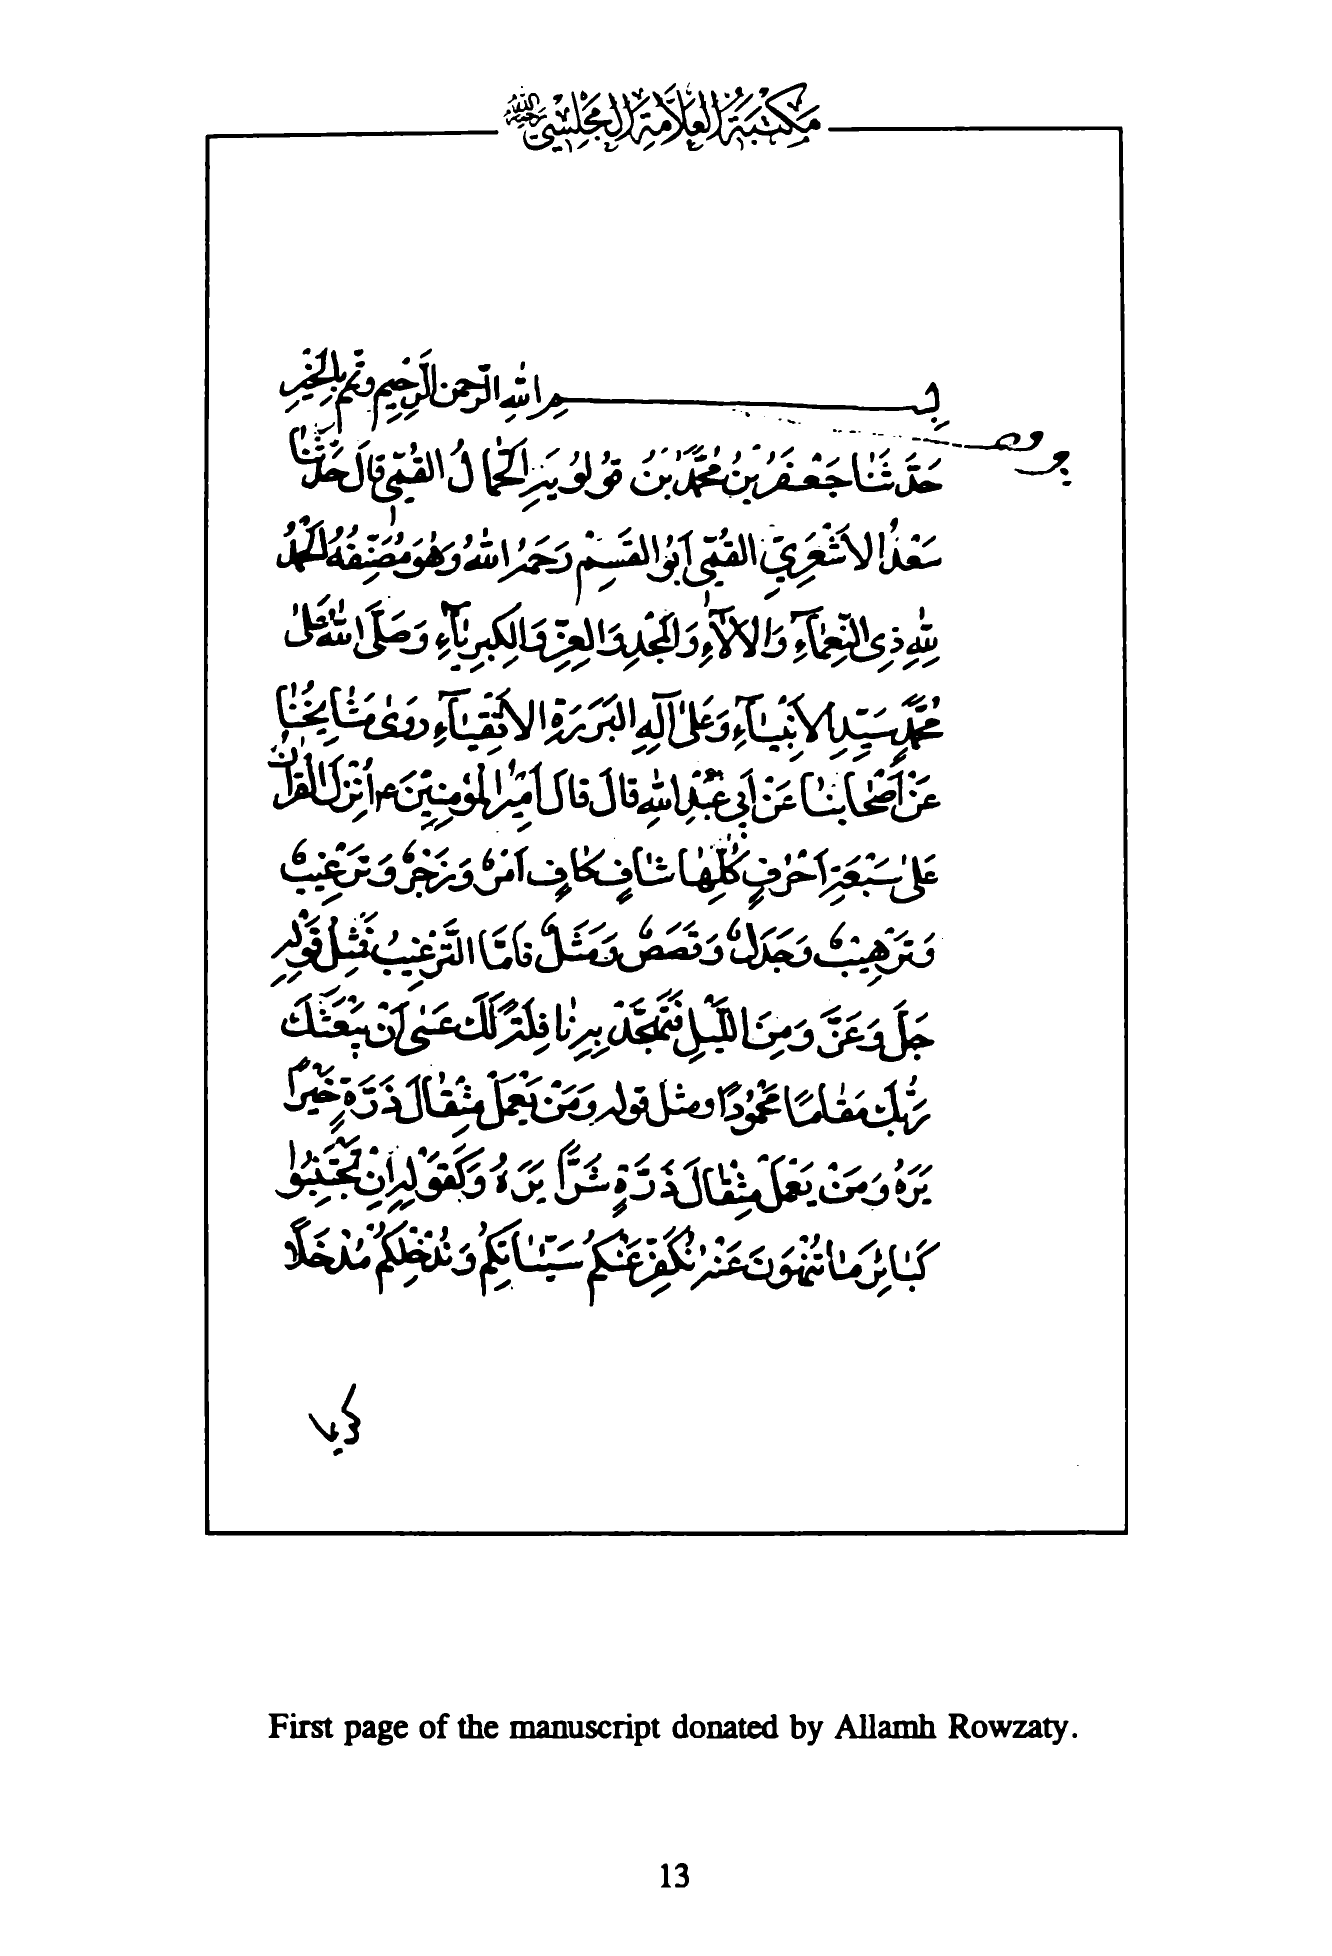 مكتبة العلامة المجلسي رحمه الله
بسم الله الرحمن الرحيم وتمم بالخير
حَدَّثَنَا جَعْفَرُ بْنُ مُحَمَّدِ بْنُ قُولُويَه الْحَمَّالُ القُمِّي قالَ حَدَّثَنَا
سَعْدُ الاَشْعَرِيّ القُمِّي اَبُو القسِم رَحِمَهُ اللهُ وَهُوَ مُصَنِّفُهُ الْحَمْدُ
لِلّٰهِ ذِي النَّعْمَآءِ وَالاٰلآءِ وَالْمَجْدِ وَالعِزِّ وَالْكِبْرِيَآءِ وَصَلَّى اللهُ عَلَىٰ
مُحَمَّدٍ سَيِّدِ الاَنْبِيَآءِ وَعَلىٰ آلِهِ البَرَرَةِ الاَتْقِيَآءِ روَىٰ مَشَايِخُنَا
عَنْ اَصْحَابِنَا عَنْ اَبِي عَبْدِ اللهِ قالَ قالَ اَمِيرُ الْمُؤمِنِيْنَ ع اُنْزِلَ الْقُرْآنُ
عَلىٰ سَبْعَةِ اَحْرُفٍ كُلُّهَا شَافٍ كَافٍ اَمْرٌ وَزَجْرٌ وَتَرْغِيبٌ
وَتَرْهِيبٌ وَجَدَلٌ وَقَصَصٌ وَمَثَلٌ فَامَّا التَّرْغِيبُ فَمِثْلُ قَوْلِهِ
جَلَّ وَعَزَّ وَمِنَ اللَّيْلِ فَتَهَجَّدْ بِهِ نَافِلَةً لَكَ عَسىٰ اَنْ يَبْعَثَكَ
رَبُّكَ مَقَامًا مَحْمُودًا ومثل قوله وَمَنْ يَعْمَلْ مِثْقَالَ ذَرَّةٍ خَيْراً
يَرَهُ وَمَنْ يَعْمَلْ مِثْقَالَ ذَرَّةٍ شَرّاً يَرَهُ وَكَقَوْلِهِ اِنْ تَجْتَنِبُوا
كَبَائِرَ مَا تُنْهَوْنَ عَنْهُ نُكَفِّرْ عَنْكُمْ سَيِّئَاتِكُمْ وَنُدْخِلْكُمْ مُدْخَلاً
كريما
First page of the manuscript donated by Allamh Rowzaty.
13